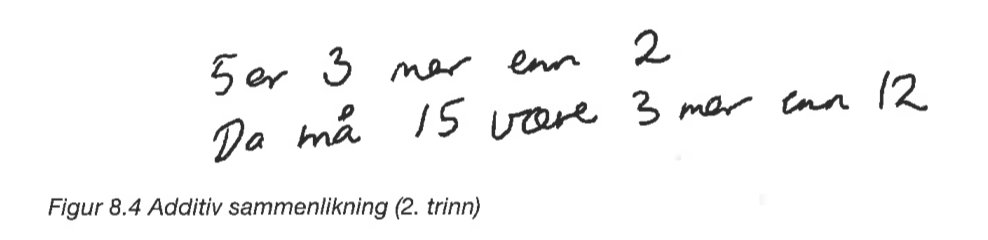 5 er 3 mer enn 2
Da må 15 være 3 mer enn 12
Figur 8.4 Additiv sammenlikning (2. trinn)